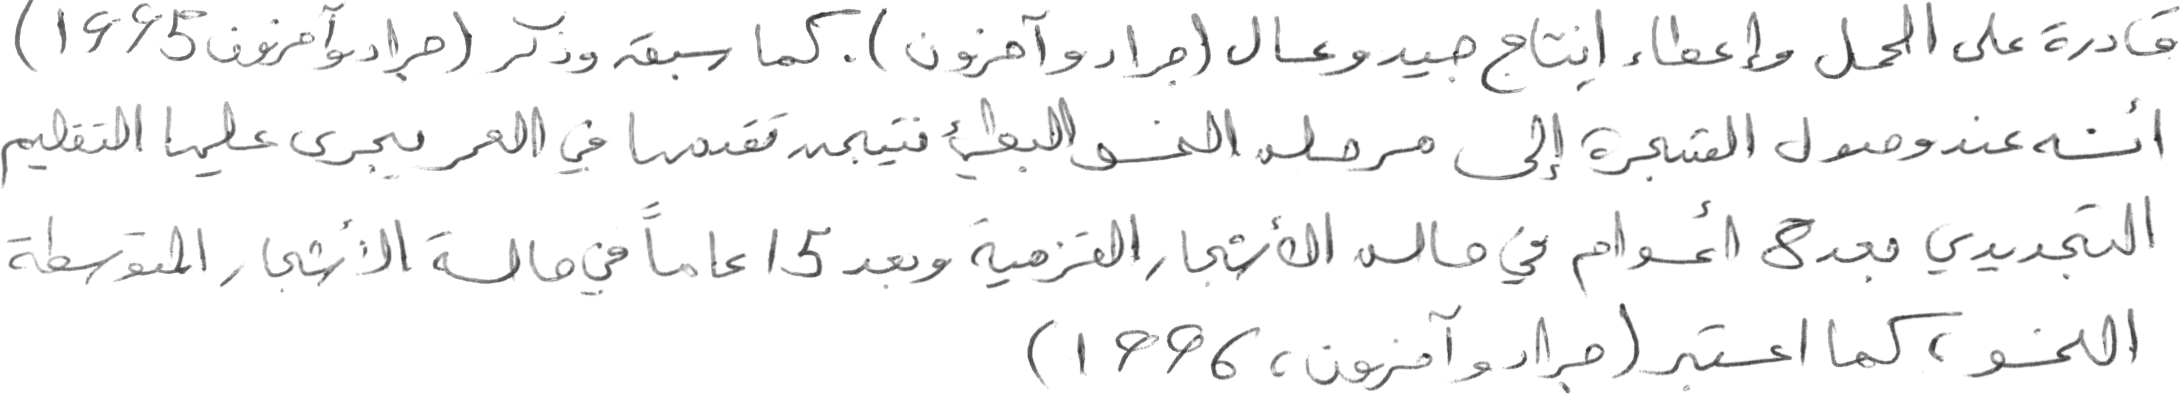 قادرة على الحمل وإعطاء إنتاج جيد وعال (جراد وآخرون). كما سبق وذكر (جراد وآخرون 1995)
أنه عند وصول الشجرة إلى مرحلة النمو البطئ نتيجة تقدمها في العمر يجرى عليها التقليم
التجديدي بعد 8 أعوام في حالة الأشجار القزمية وبعد 15 عاماً في حالة الأشجار المتوسطة
النمو، كما اعتبر (جراد وآخرون، 1996)